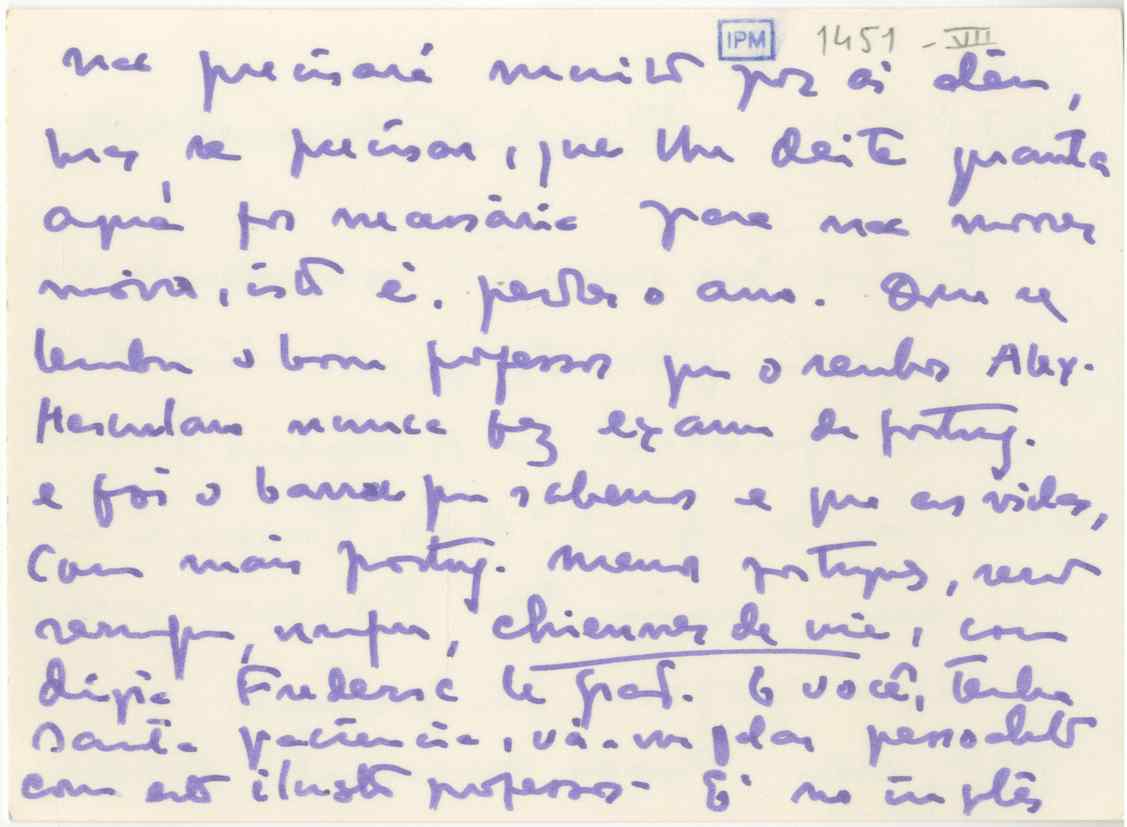 IPM 1451 - VII
não precisará muito por aí além,
mas se precisar, que lhe deite quanta
água for necessária para não morrer
isto é, perder o ano. Que se
lembre o bom professor que o senhor Alex.
Herculano nunca fez exame de portug.
e foi o que sabemos e que as vidas,
com mais portug. menos português, são
sempre, sempre, chiennes de vie, como
dizia Frederic le Grand. E você, tenha
santa paciência, vá-me falar
com este ilustre professor - E no inglês